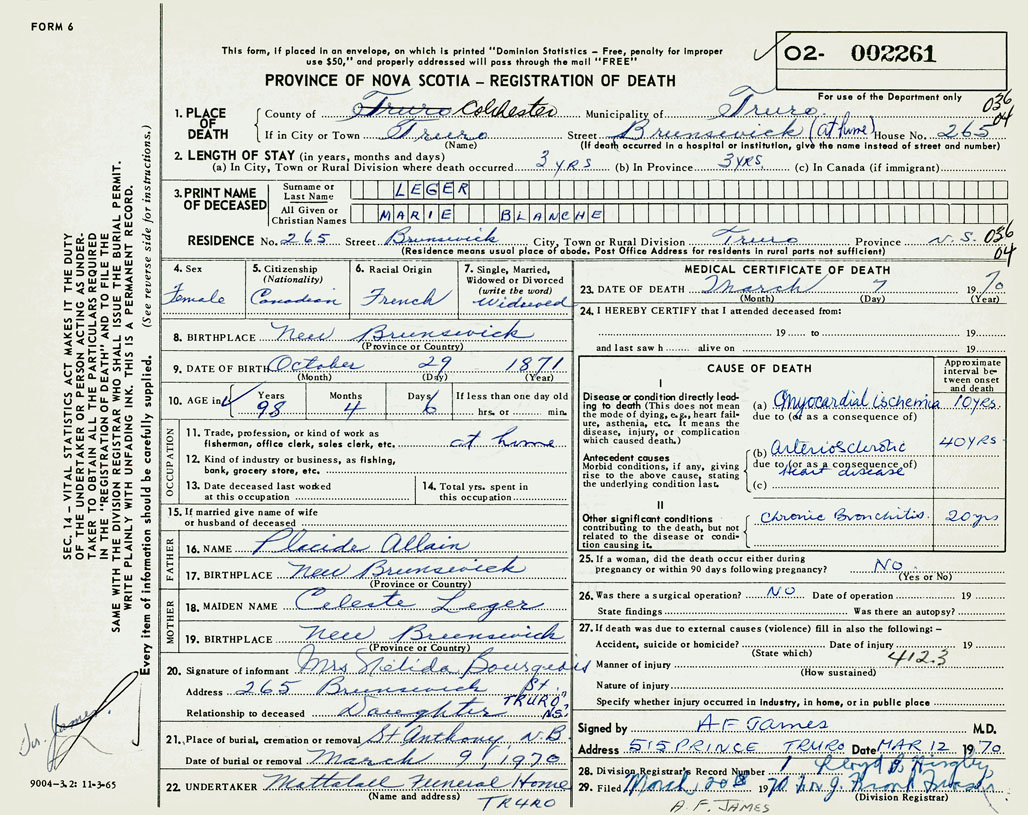 FORM 6
This form, if placed in an envelope, on which is printed "Dominion Statistics – Free, penalty for improper
use $50," and properly addressed will pass through the mail "FREE"
02- 002261
PROVINCE OF NOVA SCOTIA – REGISTRATION OF DEATH
For use of the Department only
036
04
1. PLACE OF DEATH
County of Truro Colchester Municipality of Truro
If in City or Town Truro Street Brunswick (at home) House No. 265
(Name) (If death occurred in a hospital or institution, give the name instead of street and number)
2. LENGTH OF STAY (in years, months and days)
(a) In City, Town or Rural Division where death occurred 3 YRS (b) In Province 3 YRS. (c) In Canada (if immigrant)
3. PRINT NAME OF DECEASED
Surname or Last Name LEGER
All Given or Christian Names MARIE BLANCHE
RESIDENCE No. 265 Street Brunswick City, Town or Rural Division Truro Province N.S. 036
04
(Residence means usual place of abode. Post Office Address for residents in rural parts not sufficient)
4. Sex
Female
5. Citizenship
(Nationality)
Canadian
6. Racial Origin
French
7. Single, Married,
Widowed or Divorced
(write the word)
Widowed
8. BIRTHPLACE New Brunswick
(Province or Country)
9. DATE OF BIRTH October 29 1871
(Month) (Day) (Year)
10. AGE in Years Months Days If less than one day old
98 4 6 hrs. or min.
OCCUPATION
11. Trade, profession, or kind of work as
fisherman, office clerk, sales clerk, etc. at home
12. Kind of industry or business, as fishing,
bank, grocery store, etc.
13. Date deceased last worked
at this occupation
14. Total yrs. spent in
this occupation
15. If married give name of wife
or husband of deceased
FATHER
16. NAME Placide Allain
17. BIRTHPLACE New Brunswick
(Province or Country)
MOTHER
18. MAIDEN NAME Celeste Leger
19. BIRTHPLACE New Brunswick
(Province or Country)
20. Signature of informant Mrs Nelida Bourgeois
Address 265 Brunswick St.
TRURO
Relationship to deceased Daughter N.S.
21. Place of burial, cremation or removal St Anthony, N.B
Date of burial or removal March 9, 1970
22. UNDERTAKER Mattatall Funeral Home
(Name and address)
TRURO
MEDICAL CERTIFICATE OF DEATH
23. DATE OF DEATH March 7 1970
(Month) (Day) (Year)
24. I HEREBY CERTIFY that I attended deceased from:
19 to 19
and last saw h alive on 19
CAUSE OF DEATH
Approximate interval between onset and death
I
Disease or condition directly leading to death (This does not mean the mode of dying, e.g., heart failure, asthenia, etc. It means the disease, injury, or complication which caused death.)
(a) Myocardial ischemia 10 yrs.
due to (or as a consequence of)
Antecedent causes
Morbid conditions, if any, giving rise to the above cause, stating the underlying condition last.
(b) Arteriosclerotic 40 YRS
due to (or as a consequence of)
Heart disease
(c)
II
Other significant conditions
contributing to the death, but not related to the disease or condition causing it.
Chronic Bronchitis. 20 yrs
25. If a woman, did the death occur either during
pregnancy or within 90 days following pregnancy? No
(Yes or No)
26. Was there a surgical operation? NO Date of operation 19
State findings Was there an autopsy?
27. If death was due to external causes (violence) fill in also the following: –
Accident, suicide or homicide? Date of injury 19
(State which) 412.3
Manner of injury
(How sustained)
Nature of injury
Specify whether injury occurred in Industry, in home, or in public place
Signed by A F James M.D.
Address 515 PRINCE TRURO Date MAR 12 1970.
28. Division Registrar's Record Number 1
29. Filed March 20 1970
(Division Registrar)
A. F. JAMES
SEC. 14 – VITAL STATISTICS ACT MAKES IT THE DUTY
OF THE UNDERTAKER OR PERSON ACTING AS UNDER-
TAKER TO OBTAIN ALL THE PARTICULARS REQUIRED
IN THE "REGISTRATION OF DEATH" AND TO FILE THE
SAME WITH THE DIVISION REGISTRAR WHO SHALL ISSUE THE BURIAL PERMIT.
WRITE PLAINLY WITH UNFADING INK. THIS IS A PERMANENT RECORD.
Every item of information should be carefully supplied. (See reverse side for instructions.)
James.
9004–3.2: 11-3-65